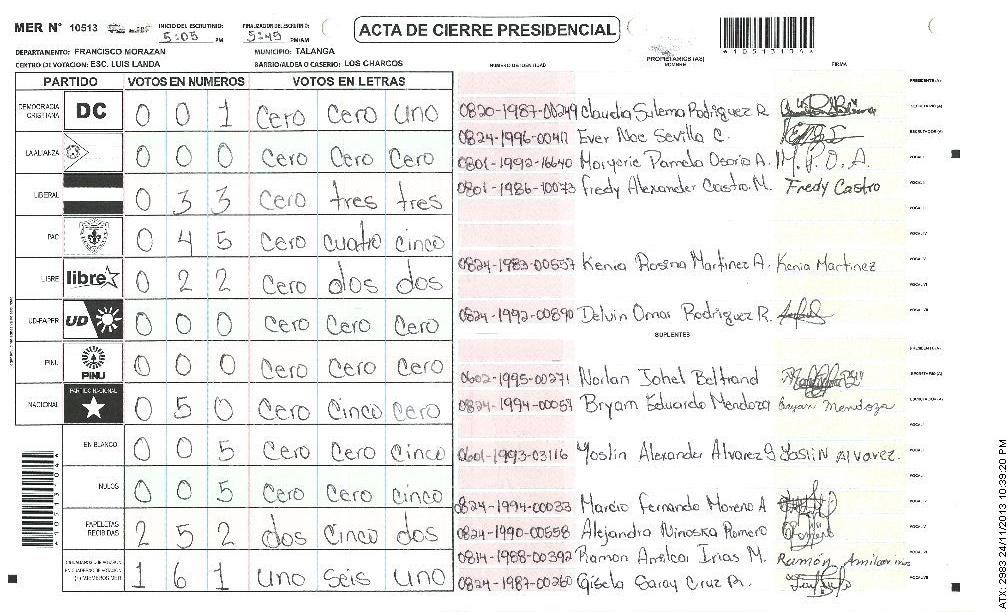 MER N° 10513
INICIO DEL ESCRUTINIO: 5:05 PM
FINALIZACION DEL ESCRUTINIO: 5:45 PM/AM
ACTA DE CIERRE PRESIDENCIAL
DEPARTAMENTO: FRANCISCO MORAZAN
MUNICIPIO: TALANGA
CENTRO DE VOTACION: ESC. LUIS LANDA
BARRIO/ALDEA O CASERIO: LOS CHARCOS
PARTIDO VOTOS EN NUMEROS VOTOS EN LETRAS
DEMOCRACIA CRISTIANA DC 0 0 1 Cero Cero Uno
LA ALIANZA 0 0 0 Cero Cero Cero
LIBERAL 0 3 3 Cero tres tres
PAC 0 4 5 Cero cuatro cinco
LIBRE libre 0 2 2 Cero dos dos
UD-FAPER UD 0 0 0 Cero Cero Cero
PINU PINU 0 0 0 Cero Cero Cero
NACIONAL PARTIDO NACIONAL 0 5 0 Cero Cinco Cero
EN BLANCO 0 0 5 Cero Cero Cinco
NULOS 0 0 5 Cero Cero cinco
PAPELETAS RECIBIDAS 2 5 2 dos Cinco dos
1 6 1 uno seis uno
NUMERO DE IDENTIDAD PROPIETARIOS (AS) NOMBRE FIRMA
0820-1987-00249 Claudia Sulema Rodriguez R
0824-1996-00417 Ever Noe Sevilla C.
0801-1992-16640 Margerie Pamela Osorio A. M.P.O.A.
0801-1986-10073 Fredy Alexander Castro.M. Fredy Castro
0824-1983-00557 Kenia Rosina Martinez A. Kenia Martinez
0824-1992-00890 Delvin Omar Rodriguez R.
SUPLENTES
0602-1995-00271 Norlan Johel Beltrand
0824-1994-00057 Bryam Eduardo Mendoza Bryan Mendoza
0601-1993-03116 Yoslin Alexander Alvarez Yoslin Alvarez.
0824-1994-00033 Marcio Fernando Moreno A
0824-1990-00558 Alejandra Ninoska Romero
0814-1988-00392 Ramon Amilcar Irias M. Ramón
0824-1987-00260 Gisela Saray Cruz A.
ATX: 2983 24/11/2013 10:39:20 PM